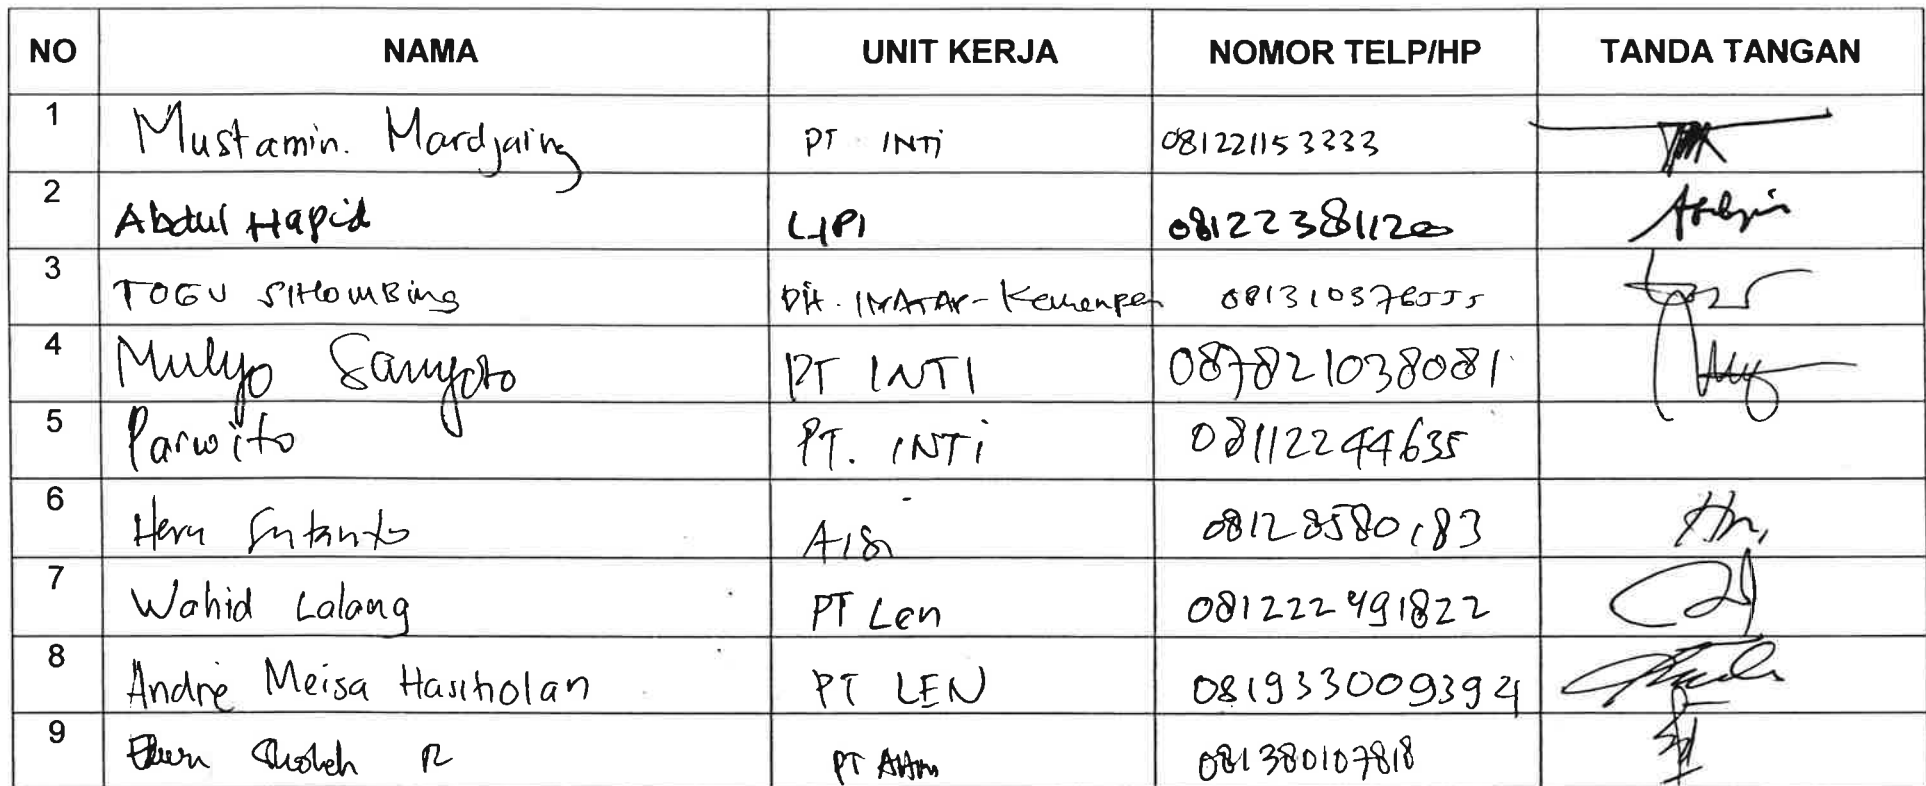 NO NAMA UNIT KERJA NOMOR TELP/HP TANDA TANGAN
1 Mustamin. Mardjaing PT INTi 081221153333
2 Abdul Hapid LIPI 081223811200
3 TOGU SIHOMBing Dit. IMATAP-Kemenper 081310376555
4 Mulyo Sanyoto PT INTI 087821038081
5 Parwito PT. INTi 08112244635
6 Heru Sutanto AISI 08128580183
7 Wahid Lalang PT Len 081222491822
8 Andre Meisa Hasiholan PT LEN 081933009394
9 Sholeh R PT AHM 081380107818